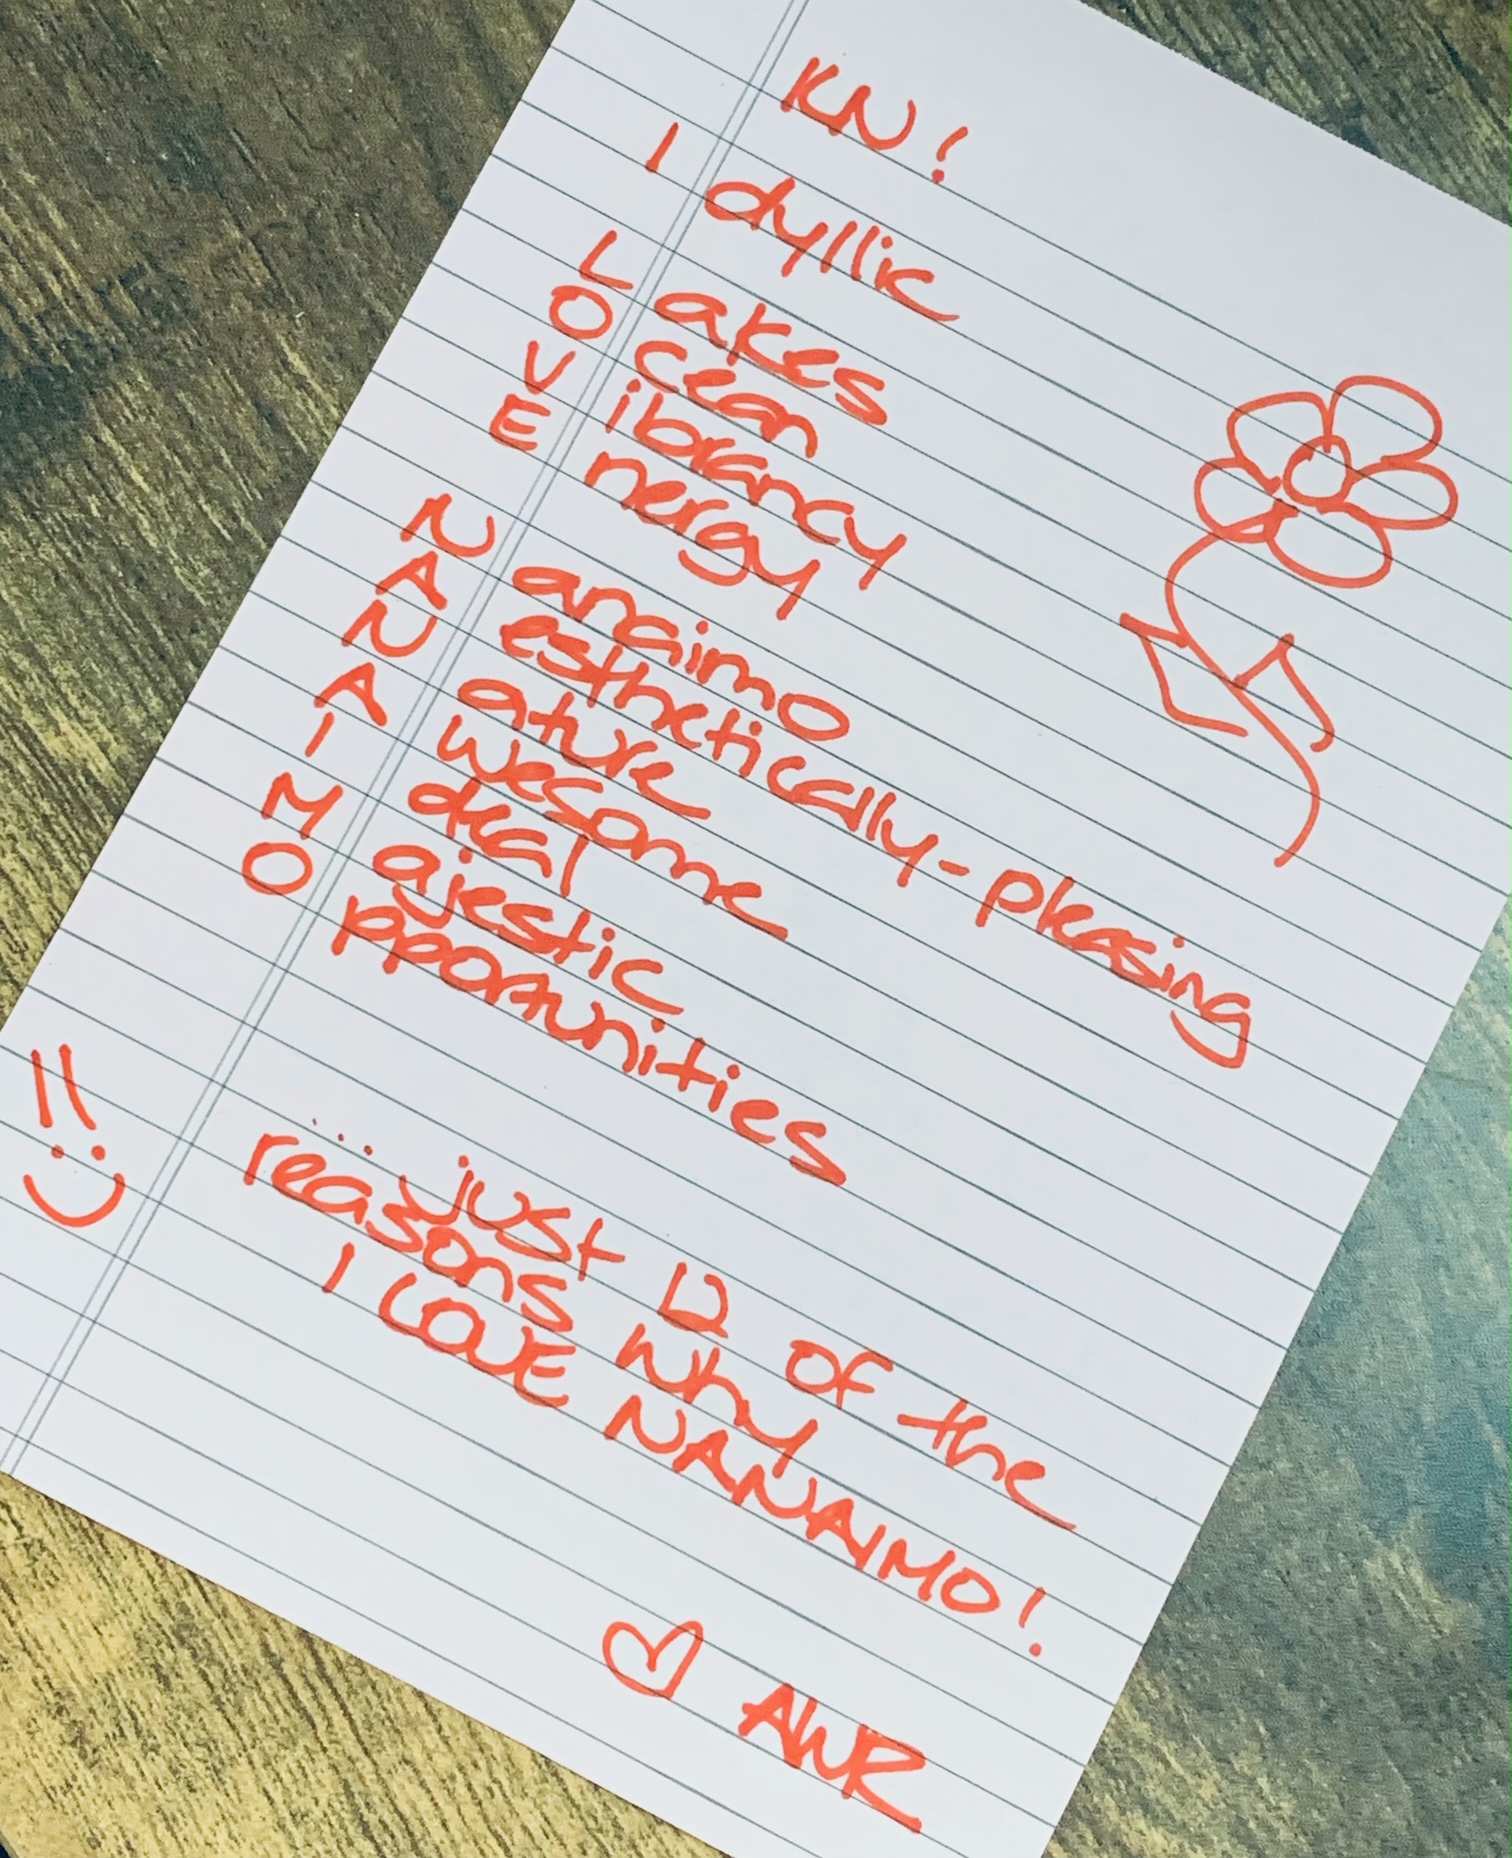 KN!
I dyllic
L akes
O cean
V ibrancy
E nergy
N anaimo
A esthetically-pleasing
N ature
A wesome
I deal
M ajestic
O pportunities
... just 12 of the
reasons why
I LOVE NANAIMO!
AWR